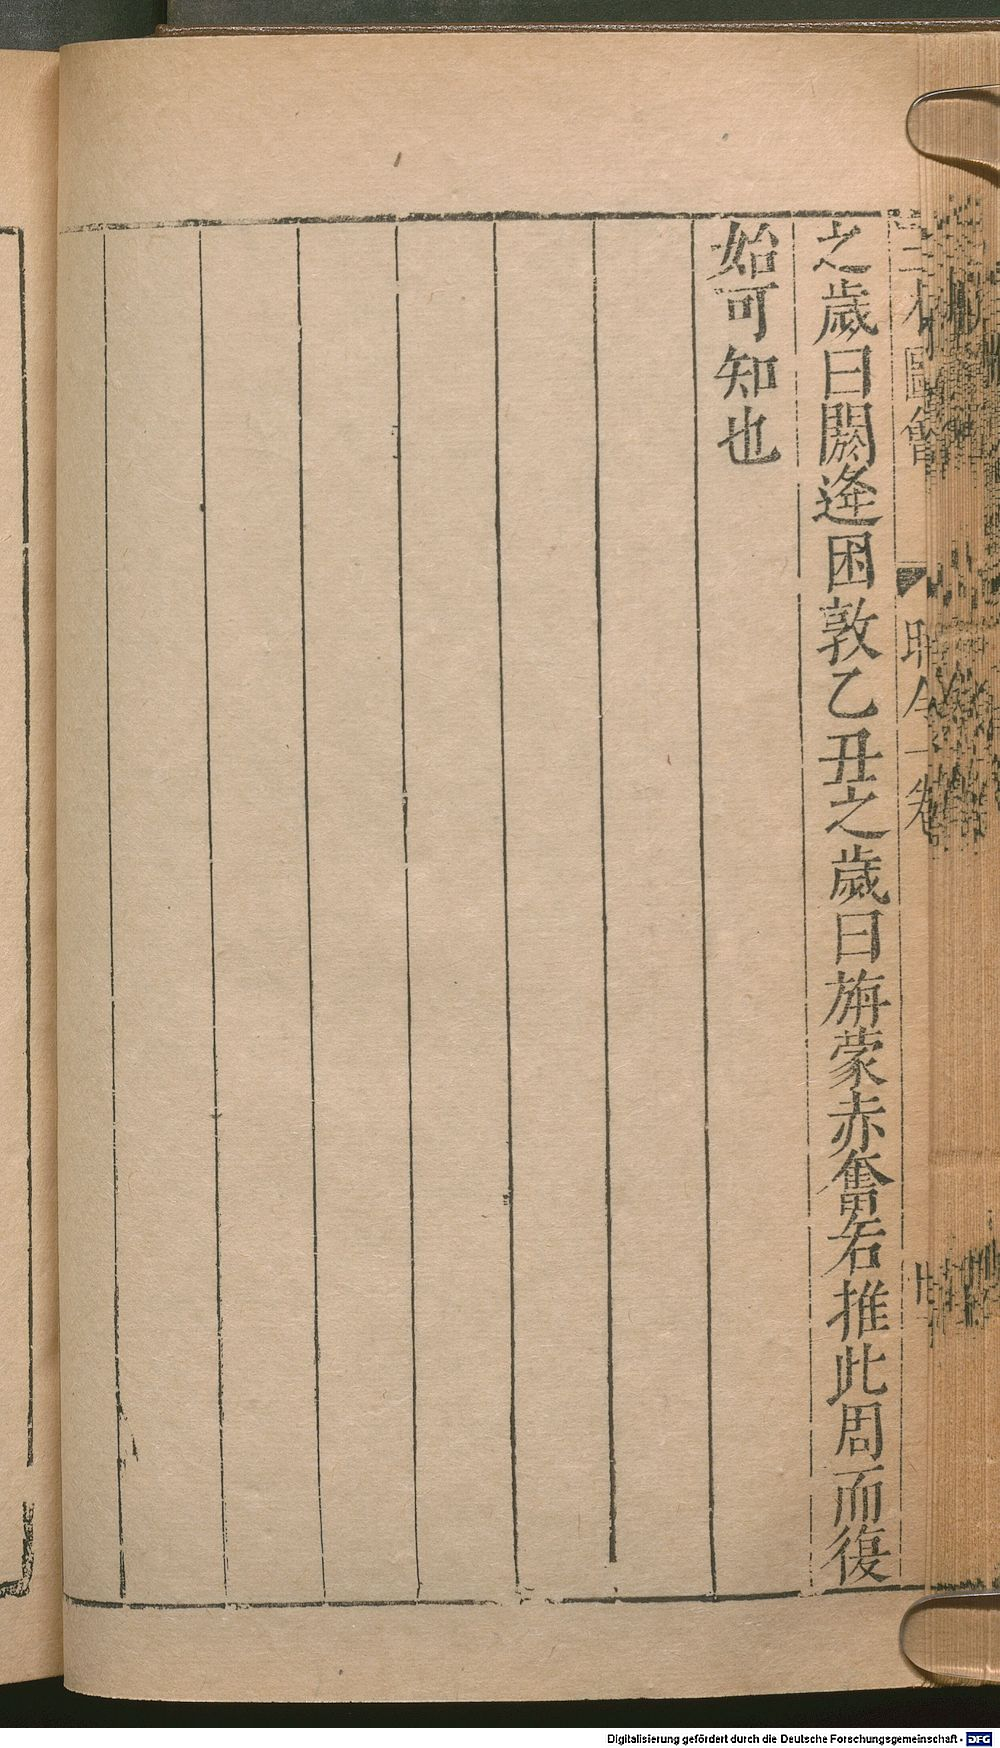 三才圖會 時令一卷
之歲曰閼逢困敦乙丑之歲曰旃蒙赤奮若推此周而復
始可知也
Digitalisierung gefördert durch die Deutsche Forschungsgemeinschaft - DFG